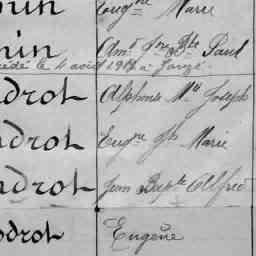 nin Eug.ne Marie
nin Am.t J.n B.te Paul
cédé le 4 août 1918 à
drot Alphonse M.ie Joseph
drot Eug.ne J.h Marie
drot Jean Bap.te Alfred
odrot Eugène